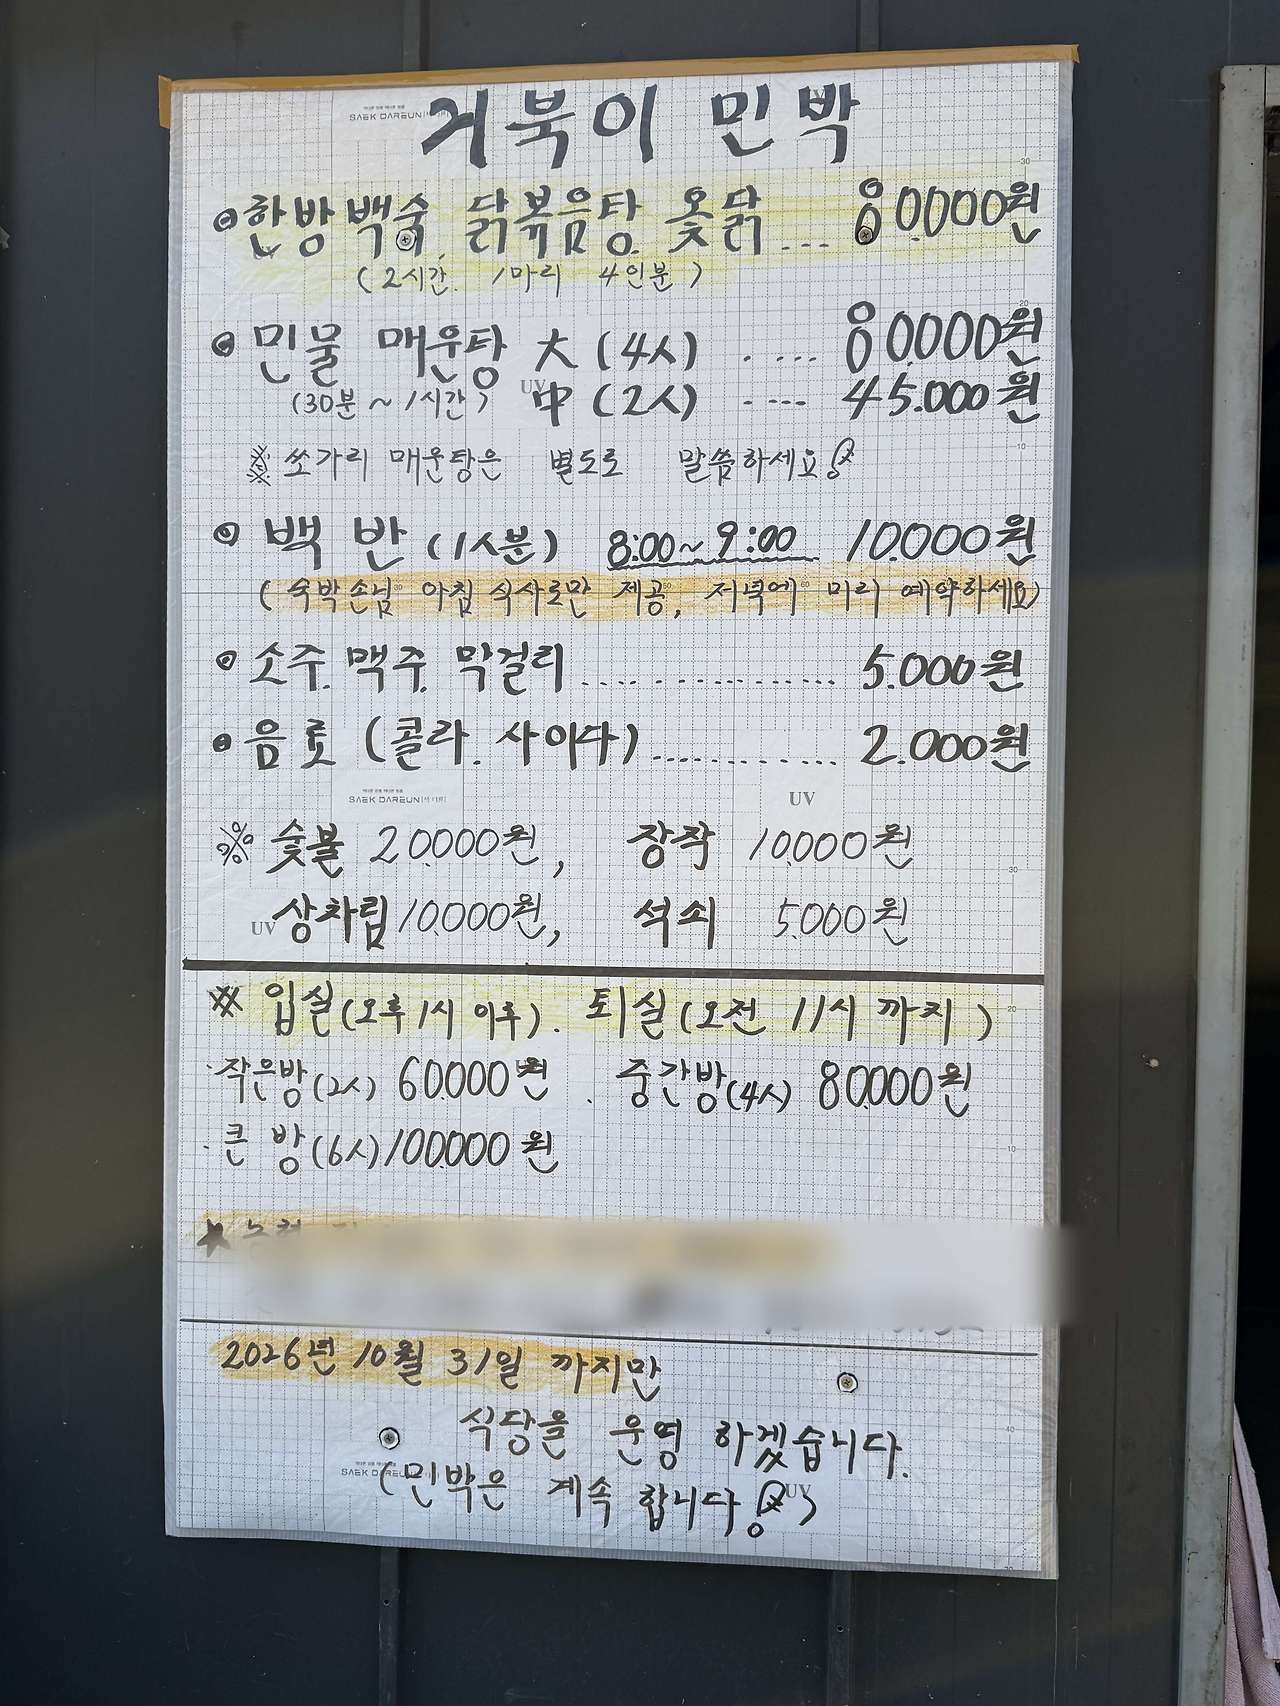 거북이 민박
⊙ 한방백숙. 닭볶음탕. 옻닭 .... 80.000원
(2시간. 1마리 4인분)
⊙ 민물 매운탕 大 (4人) .... 80.000원
(30분 ~ 1시간) 中 (2人) .... 45.000원
※ 쏘가리 매운탕은 별도로 말씀하세요!
⊙ 백반 (1人분) 8:00 ~ 9:00 10.000원
(숙박손님 아침 식사로만 제공, 저녁에 미리 예약하세요)
⊙ 소주. 맥주. 막걸리 ................ 5.000원
⊙ 음료 (콜라. 사이다) ............ 2.000원
SAEK DAREUN
UV
※ 숯불 20.000원, 장작 10.000원
UV 상차림 10.000원, 석쇠 5.000원
※ 입실 (오후 1시 이후). 퇴실 (오전 11시 까지)
· 작은방 (2人) 60.000원 . 중간방 (4人) 80.000원
· 큰 방 (6人) 100.000원
2026년 10월 31일 까지만
식당을 운영 하겠습니다.
(민박은 계속 합니다!)